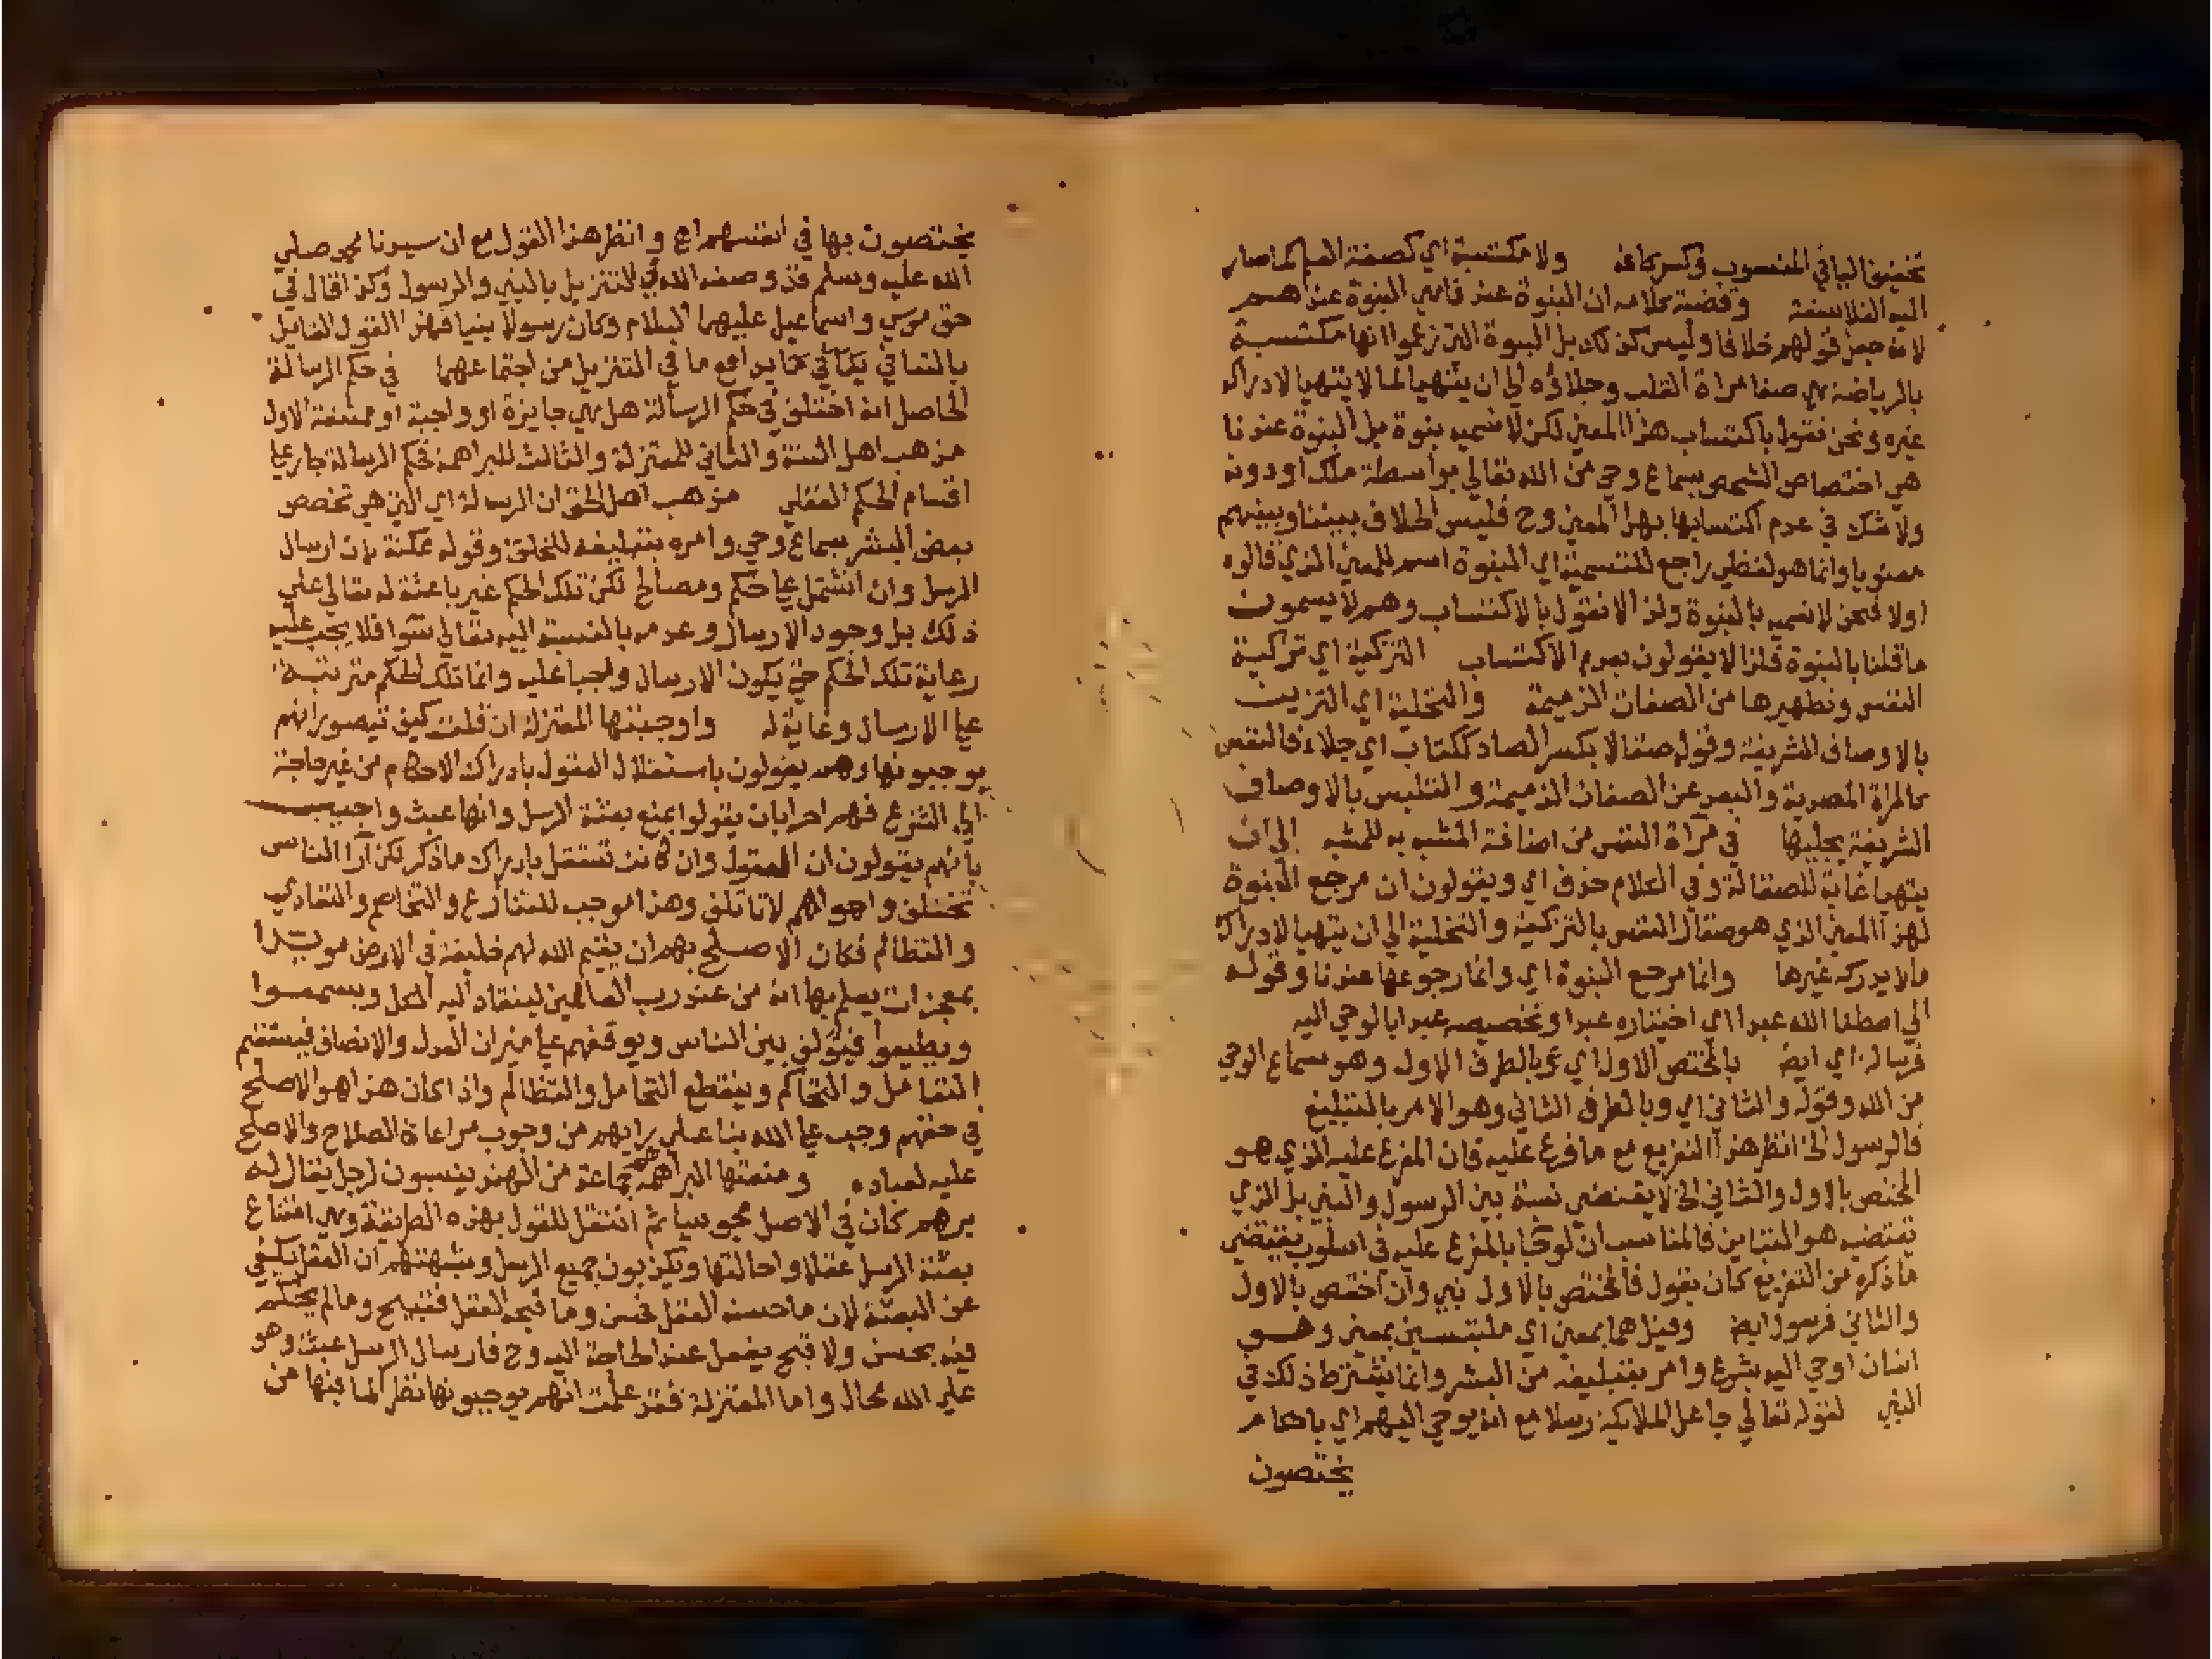 تخفيف اليا في المنسوب وكسر كاف ولا مكتسبة اي كصفة العلم كما صار
اليه الفلاسفة وقضية كلامه ان النبوة عندنا هي النبوة عندهم
لانه جعل قولهم خلافا وليس كذلك بل النبوة التي زعموا انها مكتسبة
بالرياضة هي صفا مراة القلب وجلاؤه الي ان يتهيا لما لا يتهيا لادراكه
غيره ونحن نقول باكتساب هذا المعني لكن لا نسميه بنبوة بل النبوة عندنا
هي اختصاص الشخص بسماع وحي من الله تعالي بواسطة ملك او دونه
ولا شك في عدم اكتسابها بهذا المعني وح فليس الخلاف بيننا وبينهم
معنويا وانما هو لفظي راجع للتسمية اي النبوة اسم للمعني الذي قالوه
اولا فنحن لا نسميه بالنبوة ولذا لا نقول بالاكتساب وهم لا يسمون
ما قلنا بالنبوة فلذا لا يقولون بعدم الاكتساب التزكية اي تزكية
النفس وتطهيرها من الصفات الذميمة والتحلية اي التزيين
بالاوصاف الشريفة وقوله صقالا بكسر الصاد ككتاب اي جلاء فالنفس
كالمراة المصدية والبعد عن الصفات الذميمة والتلبس بالاوصاف
الشريفة يجليها في مرآة النفس من اضافة المشبه به للمشبه الي ان
يتهيا غاية للصقالة وفي الكلام حذف اي ويقولون ان مرجع النبوة
لهذا المعني الذي هو صقال النفس بالتزكية والتحلية الي ان يتهيا لادراك
ما لا يدركه غيرها وانما مرجع النبوة اي وانما رجوعها عندنا وقوله
الي اصطفا الله عبدا اي اختياره عبدا وتخصيصه عبدا بالوحي اليه
فرسالة اي ايضا بالمختص الاول اي وبالطرف الاول وهو سماع الوحي
من الله وقوله والثاني اي وبالطرف الثاني وهو الامر بالتبليغ
فالرسول الخ انظر هذا التفريع مع ما فرع عليه فان المفرع عليه الذي هو
المختص بالاول والثاني الخ لا يقتضي نسبة بين الرسول والنبي بل الذي
يقتضيه هو التباين فالمناسب ان لو كنا بالمفرع عليه في اسلوب يقتضي
ما ذكره من التفريع كان يقول فالمختص بالاول نبي وان اختص بالاول
والثاني فرسول ايضا وقيل هما بمعني اي ملتبسين بمعني وهو
انسان اوحي اليه بشرع وامر بتبليغه من البشر وانما يشترط ذلك في
النبي لقوله تعالي جاعل الملائكة رسلا مع انه يوحي اليهم اي باحكام
يختصون
يختصون بها في انفسهم اع وانظر هذا القول مع ان سيدنا محمد صلي
الله عليه وسلم قد وصفه الله في التنزيل بالنبي والرسول وكذا قال في
حق موسي واسماعيل عليهما السلام وكان رسولا نبيا فهذا القول القايل
بالتنافي يكافي مما يدافع ما في التنزيل من اجتماعهما في حكم الرسالة
الحاصل انه اختلف في حكم الرسالة هل هي جايزة او واجبة او ممتنعة الاول
مذهب اهل السنة والثاني للمعتزلة والثالث للبراهمة فحكم الرسالة جار علي
اقسام الحكم العقلي مذهب اهل الحق ان الرسالة اي التي هي تخصص
بعض البشر بسماع وحي وامره بتبليغه للخلق وقوله ممكنة لان ارسال
الرسل وان اشتمل علي حكم ومصالح لكن تلك الحكم غير باعثة له تعالي علي
ذلك بل وجود الارسال وعدمه بالنسبة اليه تعالي سوا فلا يجب عليه
رعاية تلك الحكم حتي يكون الارسال واجبا عليه وانما تلك الحكم مترتبة
علي الارسال وغاية له واوجبتها المعتزلة ان قلت كيف تيصور انهم
يوجبونها وهم يقولون باستقلال العقول بادراك الاحكام من غير حاجة
الي الشرع فهم احرا بان يقولوا بمنع بعثة الرسل وانها عبث واجيب
بانهم يقولون ان العقول وان كانت تستقل بادراك ما ذكر لكن آرا الناس
تختلف واهواهم لا تاتلف وهذا موجب للتنازع والتخاصم والتعادي
والتظالم فكان الاصلح بهم ان يقيم الله لهم خليفة في الارض مويدا
بمعجزات يعلم بها انه من عند رب العالمين لينقاد اليه الكل ويسمعوا
ويطيعوا فيؤلف بين الناس ويوقفهم علي ميزان العدل والانصاف فيستقيم
التعامل والتحاكم وينقطع التحامل والتظالم واذا كان هذا هو الاصلح
في حقهم وجب علي الله بنا علي رايهم من وجوب مراعاة الصلاح والاصلح
عليه لعباده ومنعتها البراهمة هم جماعة من الهند ينسبون لرجل يقال له
برهم كان في الاصل مجوسيا ثم انتقل للقول بهذه الطريقة وهي امتناع
بعثة الرسل عقلا واحالتها ويكذبون جميع الرسل وشبهتهم ان العقل يكفي
عن البعثة لان ما حسنه العقل فحسن وما قبحه العقل فقبيح وما لم يحكم
فيه بحسن ولا قبح يفعل عند الحاجة اليه وح فارسال الرسل عبث وهو
علي الله محال واما المعتزلة فقد علمت انهم يوجبونها نظر لما فيها من